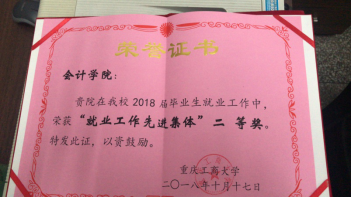 荣誉证书
会计学院：
贵院在我校2018届毕业生就业工作中，
荣获“就业工作先进集体”二等奖。
特发此证，以资鼓励。
重庆工商大学
二〇一八年十月十七日